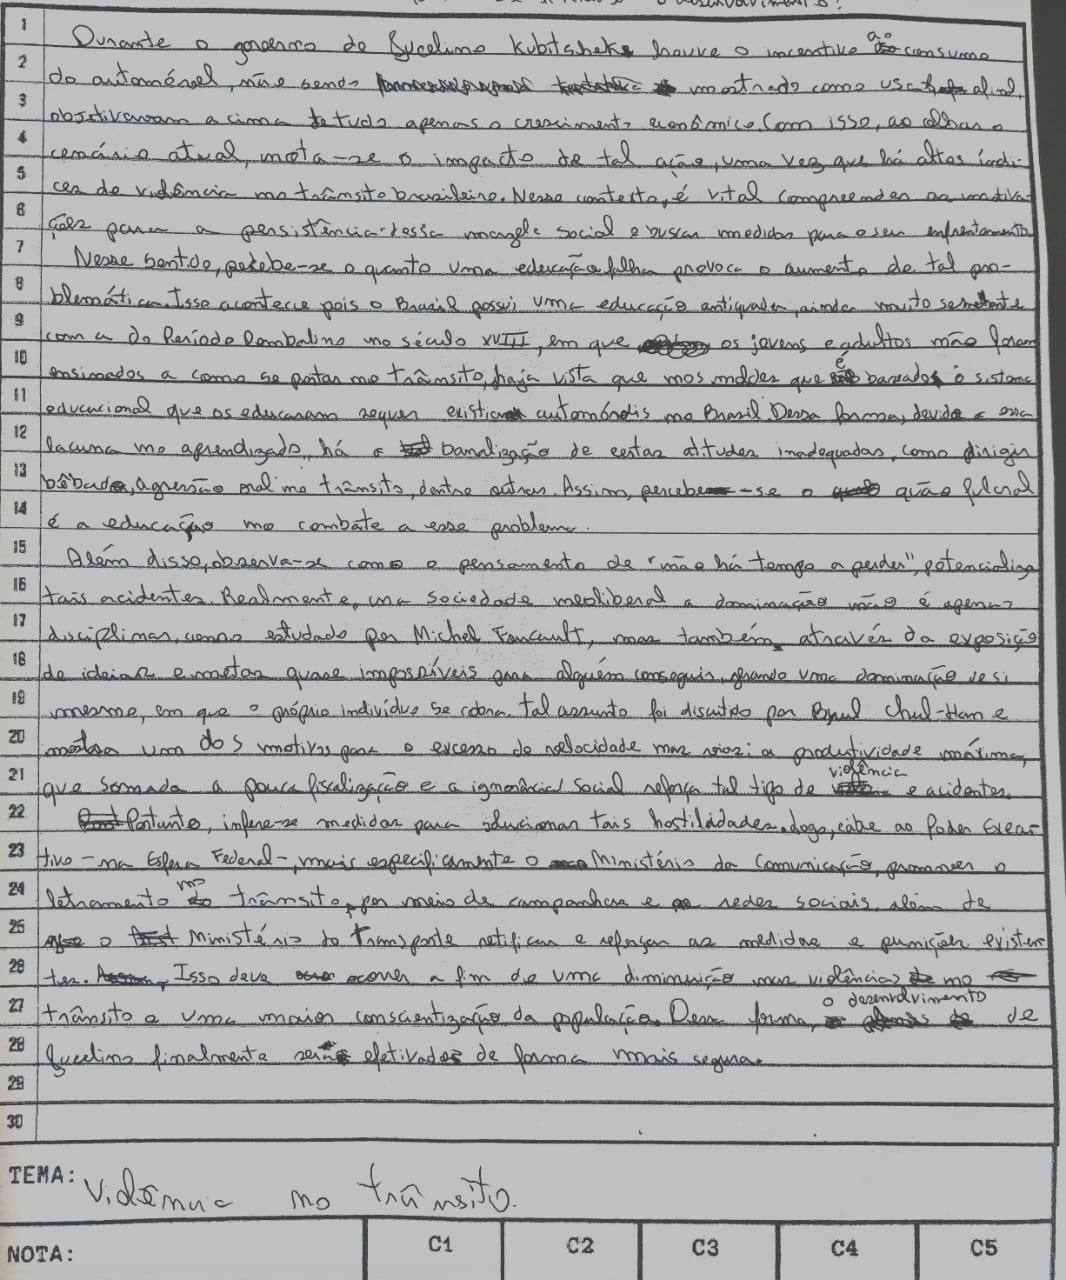 o desenvolvimento?
1 Durante o governo de Jucelino Kubitschek houve o incentivo ao consumo
2 do automóvel, não sendo mostrado como usa afinal,
3 objetivavam a cima de tudo apenas o crescimento econômico. Com isso, ao olhar o
4 cenário atual, nota-se o impacto de tal ação, uma vez que há altos índi-
5 ces de violência no trânsito brasileiro. Nesse contexto, é vital compreender as motiva-
6 ções para a persistência dessa mazela social e buscar medidas para o seu enfrentamento
7 Nesse sentido, percebe-se o quanto uma educação falha provoca o aumento de tal pro-
8 blemática. Isso acontece pois o Brasil possui uma educação antiquada, ainda muito
9 com a do Período Pombalino no século XVIII, em que os jovens e adultos não foram
10 ensinados a como se portar no trânsito, haja vista que nos moldes que é baseado o sistema
11 educacional que os educaram sequer existia automóveis no Brasil. Dessa forma, devido a essa
12 lacuna no aprendizado, há a banalização de certas atitudes inadequadas, como dirigir
13 bêbado, agressão oral no trânsito, dentre outras. Assim, percebe-se o quão fulcral
14 é a educação no combate a esse problema.
15 Além disso, observa-se como o pensamento de "não há tempo a perder", potencializa
16 tais acidentes. Realmente, na sociedade neoliberal a dominação não é apenas
17 disciplinar, como estudado por Michel Foucault, mas também, através da exposição
18 de ideias e metas quase impossíveis para alguém conseguir, gerando uma dominação de si
19 mesmo, em que o próprio indivíduo se cobra. Tal assunto foi discutido por Byul Chul-Han e
20 mostra um dos motivos para o excesso de velocidade nas vias: a produtividade máxima,
21 que somada a pouca fiscalização e a ignorância social reforça tal tipo de violência e acidentes.
22 Portanto, infere-se medidas para solucionar tais hostilidades. Logo, cabe ao Poder Execu-
23 tivo - na Esfera Federal -, mais especificamente o Ministério da Comunicação, promover o
24 letramento no trânsito, por meio de campanhas e redes sociais, além de
25 o Ministério do Transporte retificar e reforçar as medidas e punições existen-
26 tes. Isso deve ocorrer a fim de uma diminuição nas violências no
27 trânsito e uma maior conscientização da população. Dessa forma, o desenvolvimento de
28 Jucelino finalmente será efetivado de forma mais segura.
29
30
TEMA: Violência no trânsito.
NOTA: C1 C2 C3 C4 C5